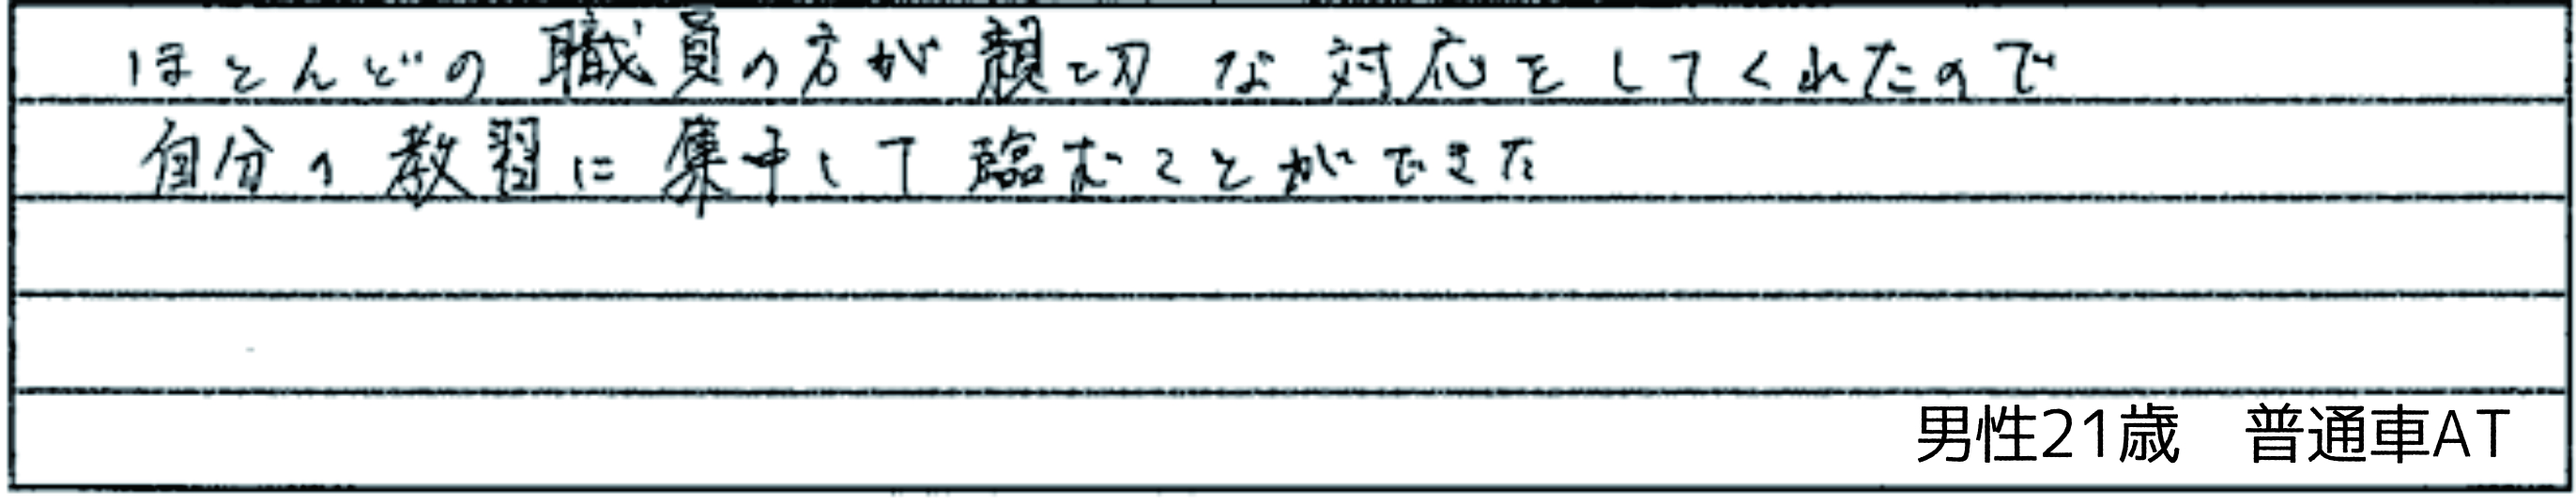 ほとんどの職員の方が親切な対応をしてくれたので
自分の教習に集中して臨むことができた
男性21歳　普通車AT